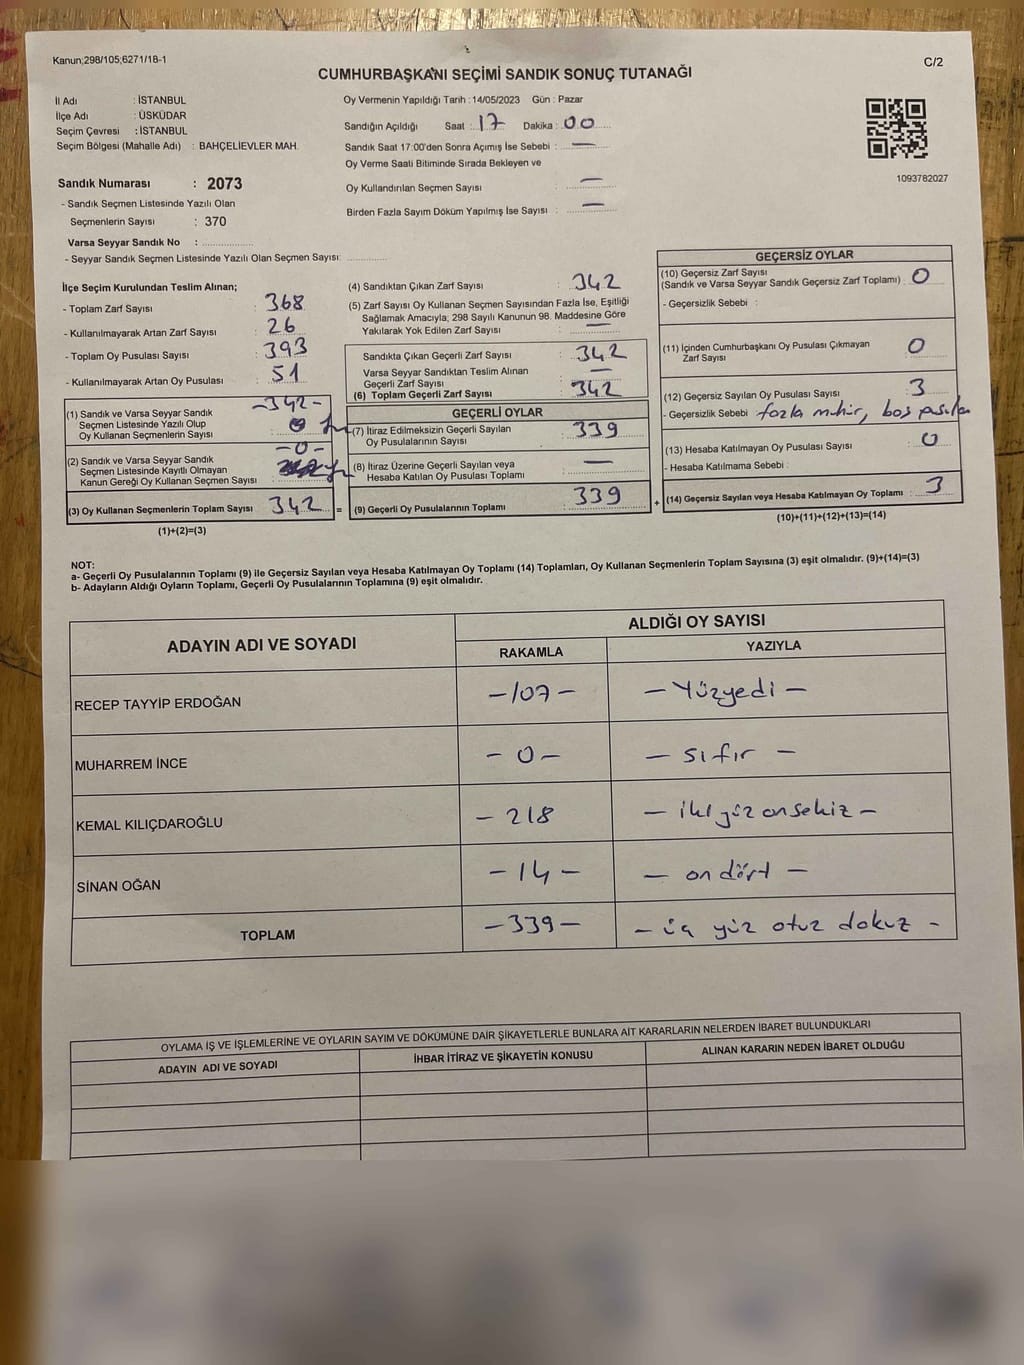 Kanun;298/105;6271/18-1
C/2
CUMHURBAŞKANI SEÇİMİ SANDIK SONUÇ TUTANAĞI
İl Adı : İSTANBUL
İlçe Adı : ÜSKÜDAR
Seçim Çevresi : İSTANBUL
Seçim Bölgesi (Mahalle Adı) : BAHÇELİEVLER MAH.
Sandık Numarası : 2073
- Sandık Seçmen Listesinde Yazılı Olan
Seçmenlerin Sayısı : 370
Varsa Seyyar Sandık No :
- Seyyar Sandık Seçmen Listesinde Yazılı Olan Seçmen Sayısı:
Oy Vermenin Yapıldığı Tarih : 14/05/2023 Gün : Pazar
Sandığın Açıldığı Saat : 17 Dakika : 00
Sandık Saat 17:00'den Sonra Açımış İse Sebebi : —
Oy Verme Saati Bitiminde Sırada Bekleyen ve
Oy Kullandırılan Seçmen Sayısı : —
Birden Fazla Sayım Döküm Yapılmış İse Sayısı : —
1093782027
İlçe Seçim Kurulundan Teslim Alınan;
- Toplam Zarf Sayısı : 368
- Kullanılmayarak Artan Zarf Sayısı : 26
- Toplam Oy Pusulası Sayısı : 393
- Kullanılmayarak Artan Oy Pusulası : 51
(1) Sandık ve Varsa Seyyar Sandık -342-
Seçmen Listesinde Yazılı Olup
Oy Kullanan Seçmenlerin Sayısı
(2) Sandık ve Varsa Seyyar Sandık -0-
Seçmen Listesinde Kayıtlı Olmayan
Kanun Gereği Oy Kullanan Seçmen Sayısı :
(3) Oy Kullanan Seçmenlerin Toplam Sayısı 342 =
(1)+(2)=(3)
(4) Sandıktan Çıkan Zarf Sayısı : 342
(5) Zarf Sayısı Oy Kullanan Seçmen Sayısından Fazla İse, Eşitliği
Sağlamak Amacıyla; 298 Sayılı Kanunun 98. Maddesine Göre
Yakılarak Yok Edilen Zarf Sayısı : —
Sandıkta Çıkan Geçerli Zarf Sayısı : 342
Varsa Seyyar Sandıktan Teslim Alınan
Geçerli Zarf Sayısı : —
(6) Toplam Geçerli Zarf Sayısı : 342
GEÇERLİ OYLAR
(7) İtiraz Edilmeksizin Geçerli Sayılan
Oy Pusulalarının Sayısı : 339
(8) İtiraz Üzerine Geçerli Sayılan veya
Hesaba Katılan Oy Pusulası Toplamı : —
(9) Geçerli Oy Pusulalarının Toplamı : 339 +
GEÇERSİZ OYLAR
(10) Geçersiz Zarf Sayısı
(Sandık ve Varsa Seyyar Sandık Geçersiz Zarf Toplamı) : 0
- Geçersizlik Sebebi :
(11) İçinden Cumhurbaşkanı Oy Pusulası Çıkmayan
Zarf Sayısı : 0
(12) Geçersiz Sayılan Oy Pusulası Sayısı : 3
- Geçersizlik Sebebi fazla mühür, boş pusula
(13) Hesaba Katılmayan Oy Pusulası Sayısı : 0
- Hesaba Katılmama Sebebi :
(14) Geçersiz Sayılan veya Hesaba Katılmayan Oy Toplamı : 3
(10)+(11)+(12)+(13)=(14)
NOT:
a- Geçerli Oy Pusulalarının Toplamı (9) ile Geçersiz Sayılan veya Hesaba Katılmayan Oy Toplamı (14) Toplamları, Oy Kullanan Seçmenlerin Toplam Sayısına (3) eşit olmalıdır. (9)+(14)=(3)
b- Adayların Aldığı Oyların Toplamı, Geçerli Oy Pusulalarının Toplamına (9) eşit olmalıdır.
ADAYIN ADI VE SOYADI
ALDIĞI OY SAYISI
RAKAMLA YAZIYLA
RECEP TAYYİP ERDOĞAN -107- - Yüzyedi -
MUHARREM İNCE - 0 - - sıfır -
KEMAL KILIÇDAROĞLU - 218 - iki yüz onsekiz -
SİNAN OĞAN - 14 - - on dört -
TOPLAM -339- - üç yüz otuz dokuz -
OYLAMA İŞ VE İŞLEMLERİNE VE OYLARIN SAYIM VE DÖKÜMÜNE DAİR ŞİKAYETLERLE BUNLARA AİT KARARLARIN NELERDEN İBARET BULUNDUKLARI
ADAYIN ADI VE SOYADI
İHBAR İTİRAZ VE ŞİKAYETİN KONUSU
ALINAN KARARIN NEDEN İBARET OLDUĞU